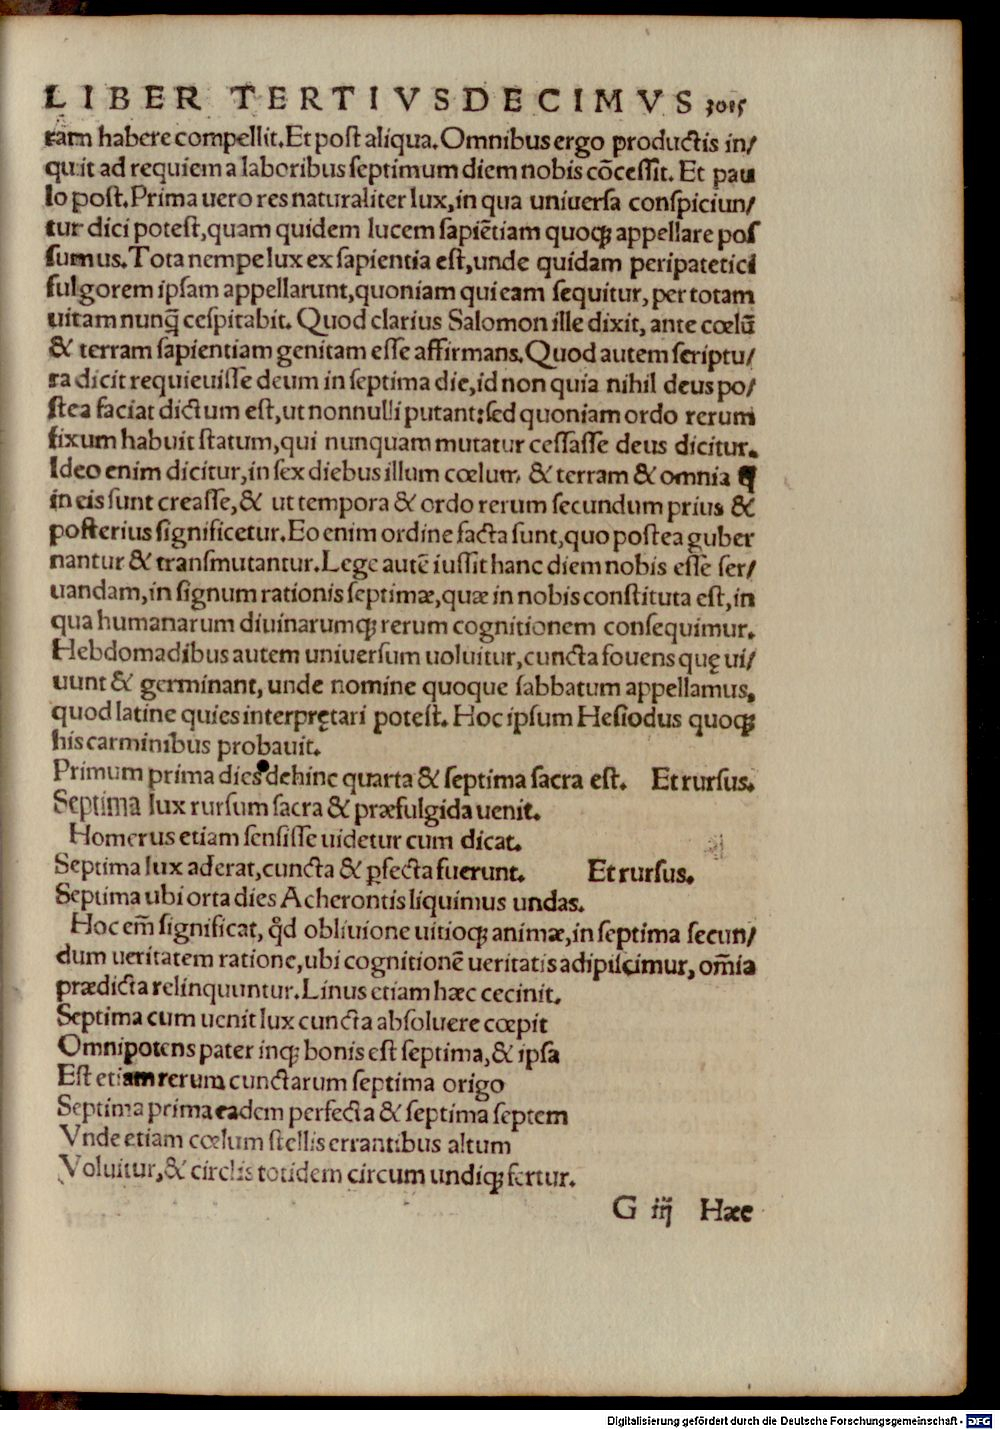 LIBER TERTIVSDECIMVS
ram habere compellit. Et post aliqua. Omnibus ergo productis in/
quit ad requiem a laboribus septimum diem nobis cōcessit. Et pau
lo post. Prima uero res naturaliter lux, in qua uniuersa conspiciun/
tur dici potest, quam quidem lucem sapiētiam quoqȝ appellare pos
sumus. Tota nempe lux ex sapientia est, unde quidam peripatetici
fulgorem ipsam appellarunt, quoniam qui eam sequitur, per totam
uitam nunq̄ cespitabit. Quod clarius Salomon ille dixit, ante cœlū
& terram sapientiam genitam esse affirmans. Quod autem scriptu/
ra dicit requieuisse deum in septima die, id non quia nihil deus po/
stea faciat dictum est, ut nonnulli putant: sed quoniam ordo rerum
fixum habuit statum, qui nunquam mutatur cessasse deus dicitur.
Ideo enim dicitur, in sex diebus illum cœlum & terram & omnia q̄
in eis sunt creasse, & ut tempora & ordo rerum secundum prius &
posterius significetur. Eo enim ordine facta sunt, quo postea guber
nantur & transmutantur. Lege autē iussit hanc diem nobis esse ser/
uandam, in signum rationis septimæ, quæ in nobis constituta est, in
qua humanarum diuinarumqȝ rerum cognitionem consequimur.
Hebdomadibus autem uniuersum uoluitur, cuncta fouens quę ui/
uunt & germinant, unde nomine quoque sabbatum appellamus,
quod latine quies interprętari potest. Hoc ipsum Hesiodus quoqȝ
his carminibus probauit.
Primum prima dies dehinc quarta & septima sacra est. Et rursus.
Septima lux rursum sacra & præfulgida uenit.
Homerus etiam sensisse uidetur cum dicat.
Septima lux aderat, cuncta & ꝑfecta fuerunt. Et rursus.
Septima ubi orta dies Acherontis liquimus undas.
Hoc em̄ significat, qd̄ obliuione uitioqȝ animæ, in septima secun/
dum ueritatem ratione, ubi cognitionē ueritatis adipiscimur, om̄ia
prædicta relinquuntur. Linus etiam hæc cecinit.
Septima cum uenit lux cuncta absoluere cœpit
Omnipotens pater inqȝ bonis est septima, & ipsa
Est etiam rerum cunctarum septima origo
Septima prima eadem perfecta & septima septem
Vnde etiam cœlum stellis errantibus altum
Voluitur, & circlis totidem circum undiqȝ fertur.
G iij Hæc
Digitalisierung gefördert durch die Deutsche Forschungsgemeinschaft - DFG